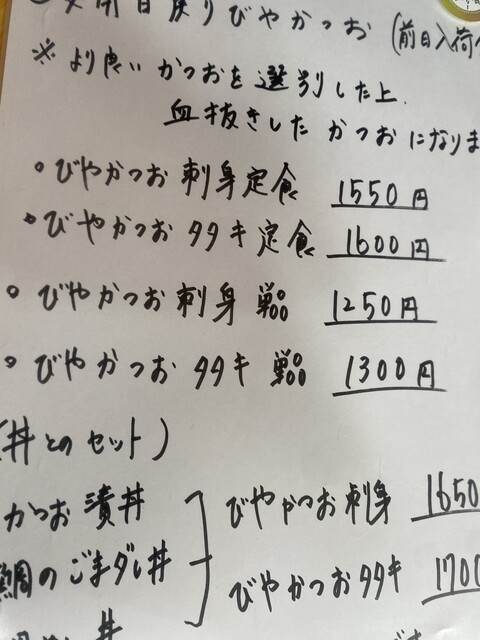 びやかつお(前日入荷
※より良いかつおを選別した上、
血抜きしたかつおになりま
・びやかつお刺身定食 1550円
・びやかつおタタキ定食 1600円
・びやかつお刺身単品 1250円
・びやかつおタタキ単品 1300円
(丼とのセット)
かつお漬丼
びやかつお刺身 1650
鯛のごまダレ丼
びやかつおタタキ 1700
丼